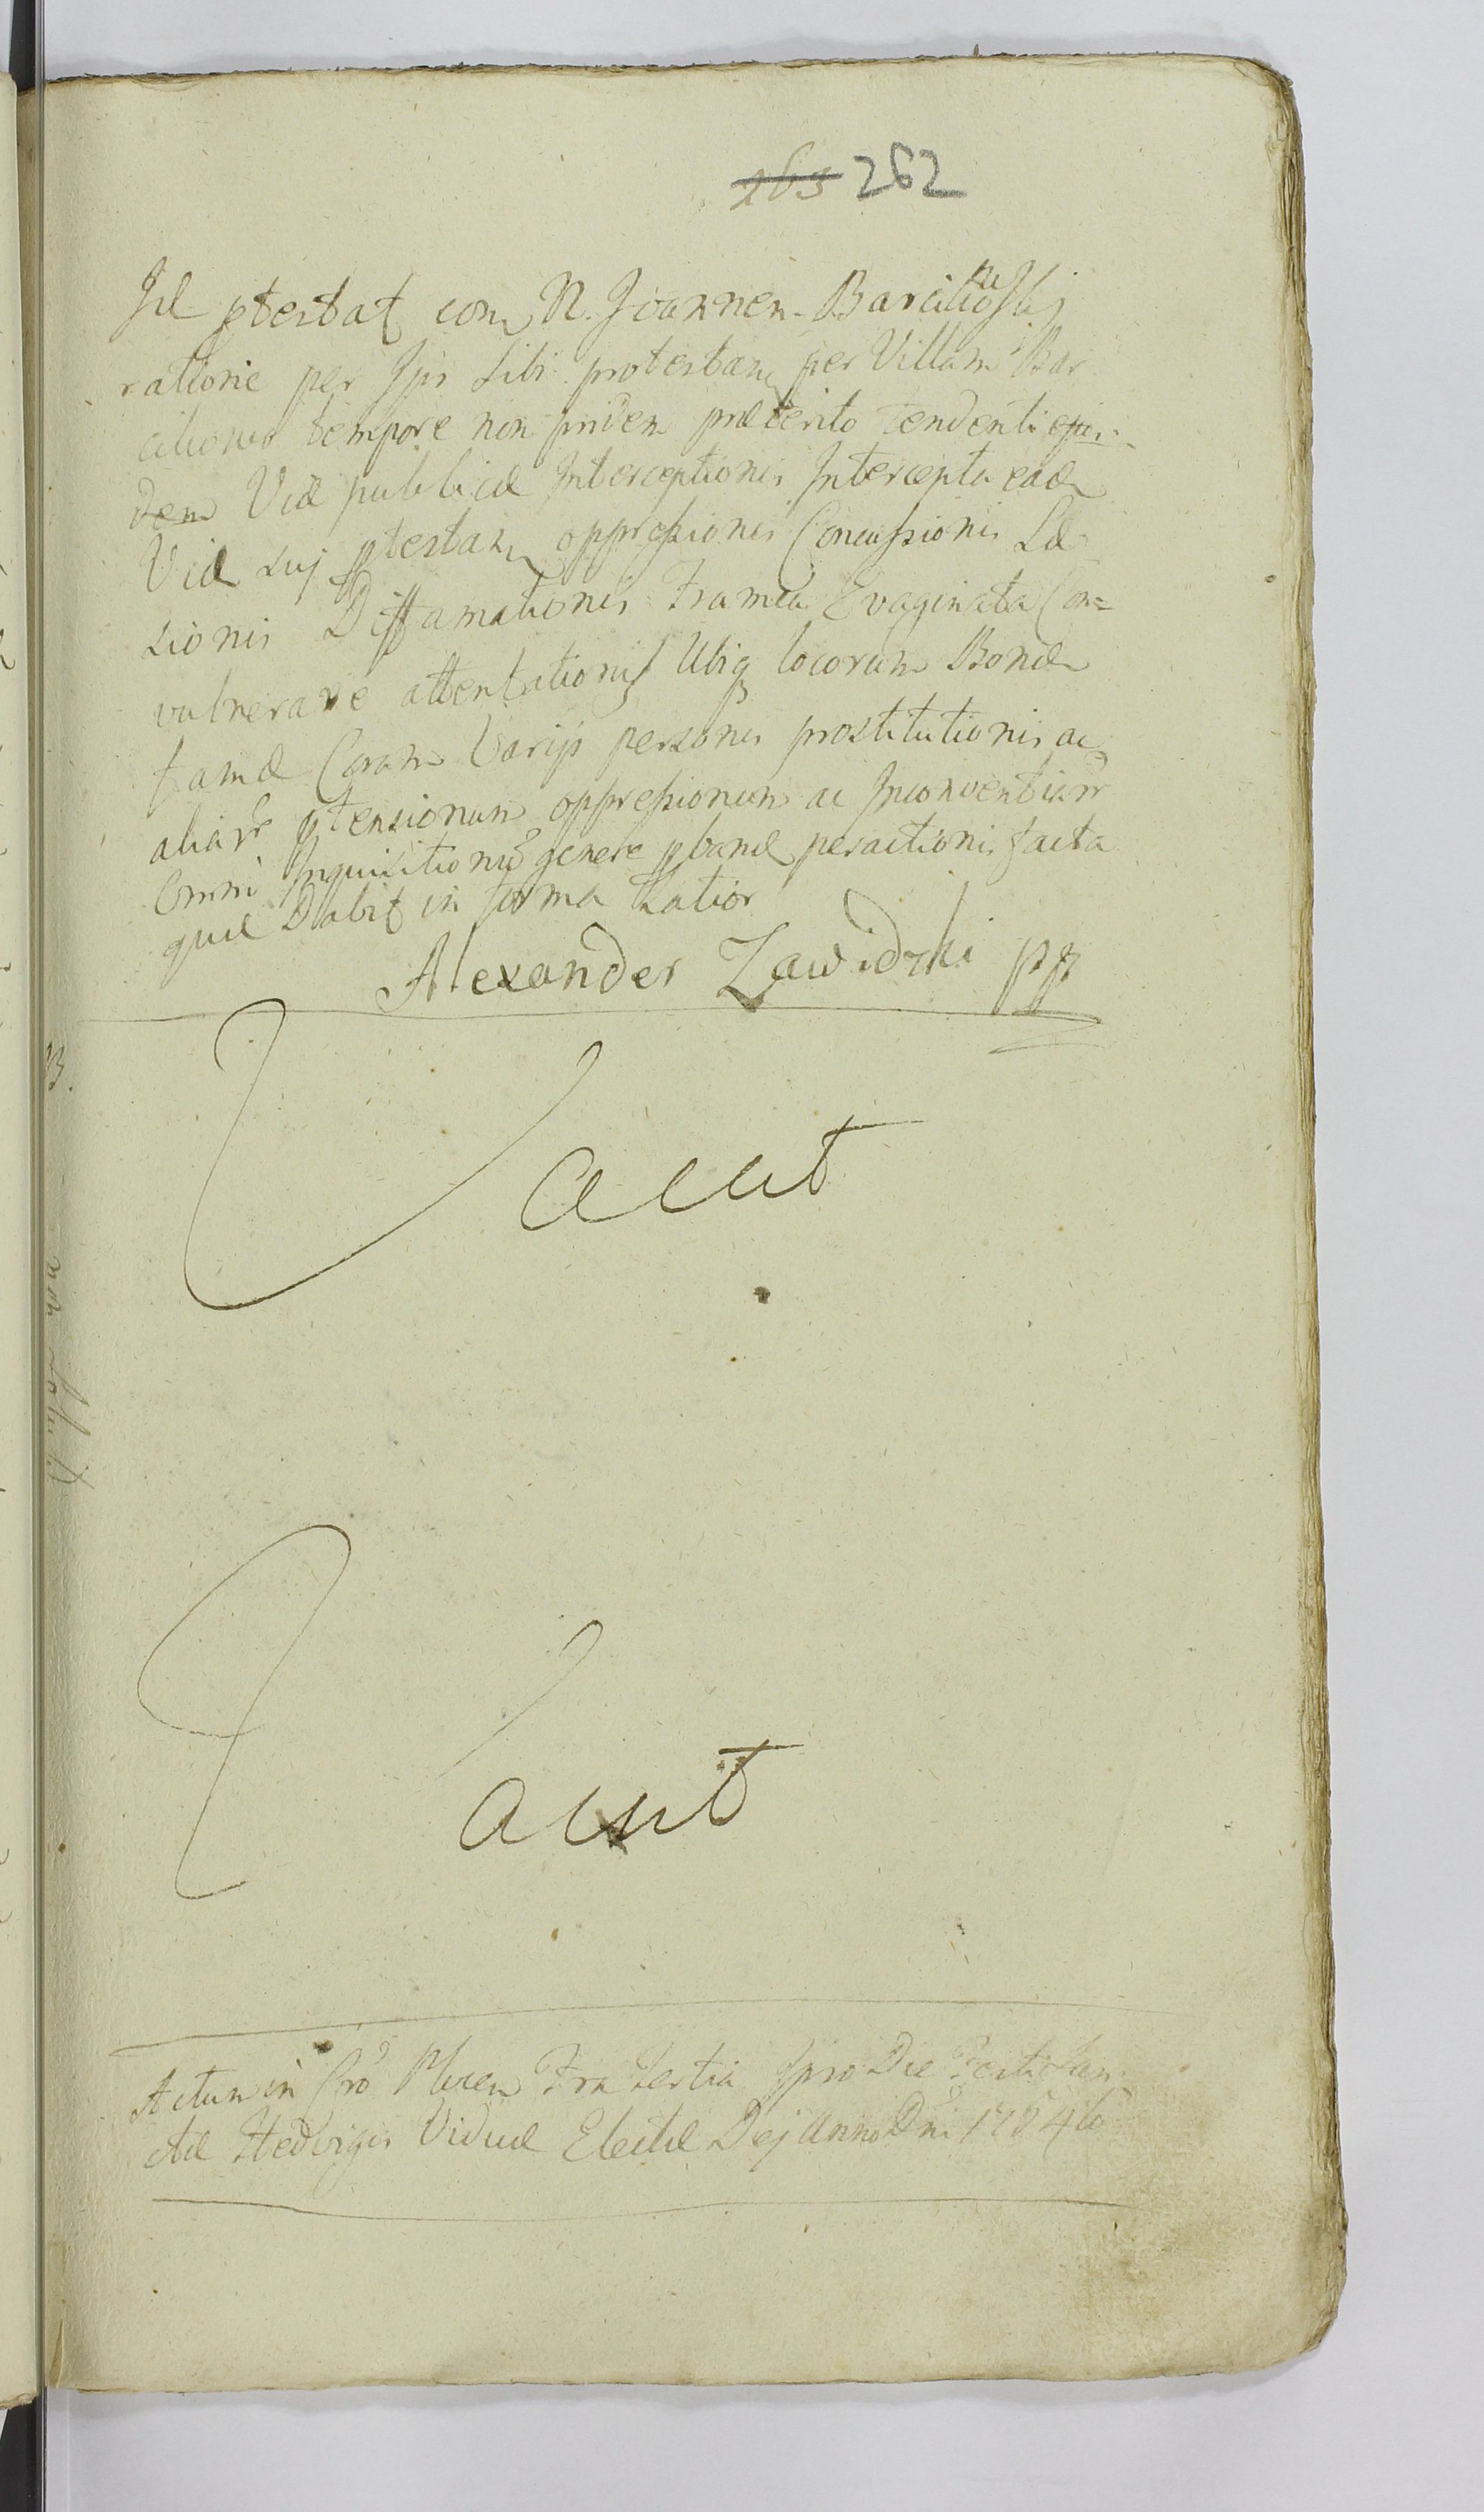 263 262
Id ptestat con N. Joannem Barcikoskj
ratione per Ipi Sibi protestan per Villam Bar
cikones tempore non pridem præterito tendenti ejus
dem Viæ publicæ Interceptionis Intercepta ead
Via suj ptestan oppressionis Concussionis Læ
sionis Diffamationis Framea Evaginata Con=
vulnerare attentationis Ubiq locorum Bonæ
famæ Coram Varijs personis prostitutionis ac
aliar ptensionum oppressionum ac Inconventiarr
Omni Inquisitionis genere pbandæ peractionis facta
quæ Dabit in forma Latior
Alexander Zawidzki pp
Vacat
Vacat
Actum in Cro Plocen Fra Tertia Ipso Die Festi San
ctæ Hedvigis Viduæ Electæ Dej Anno Dni 1754to